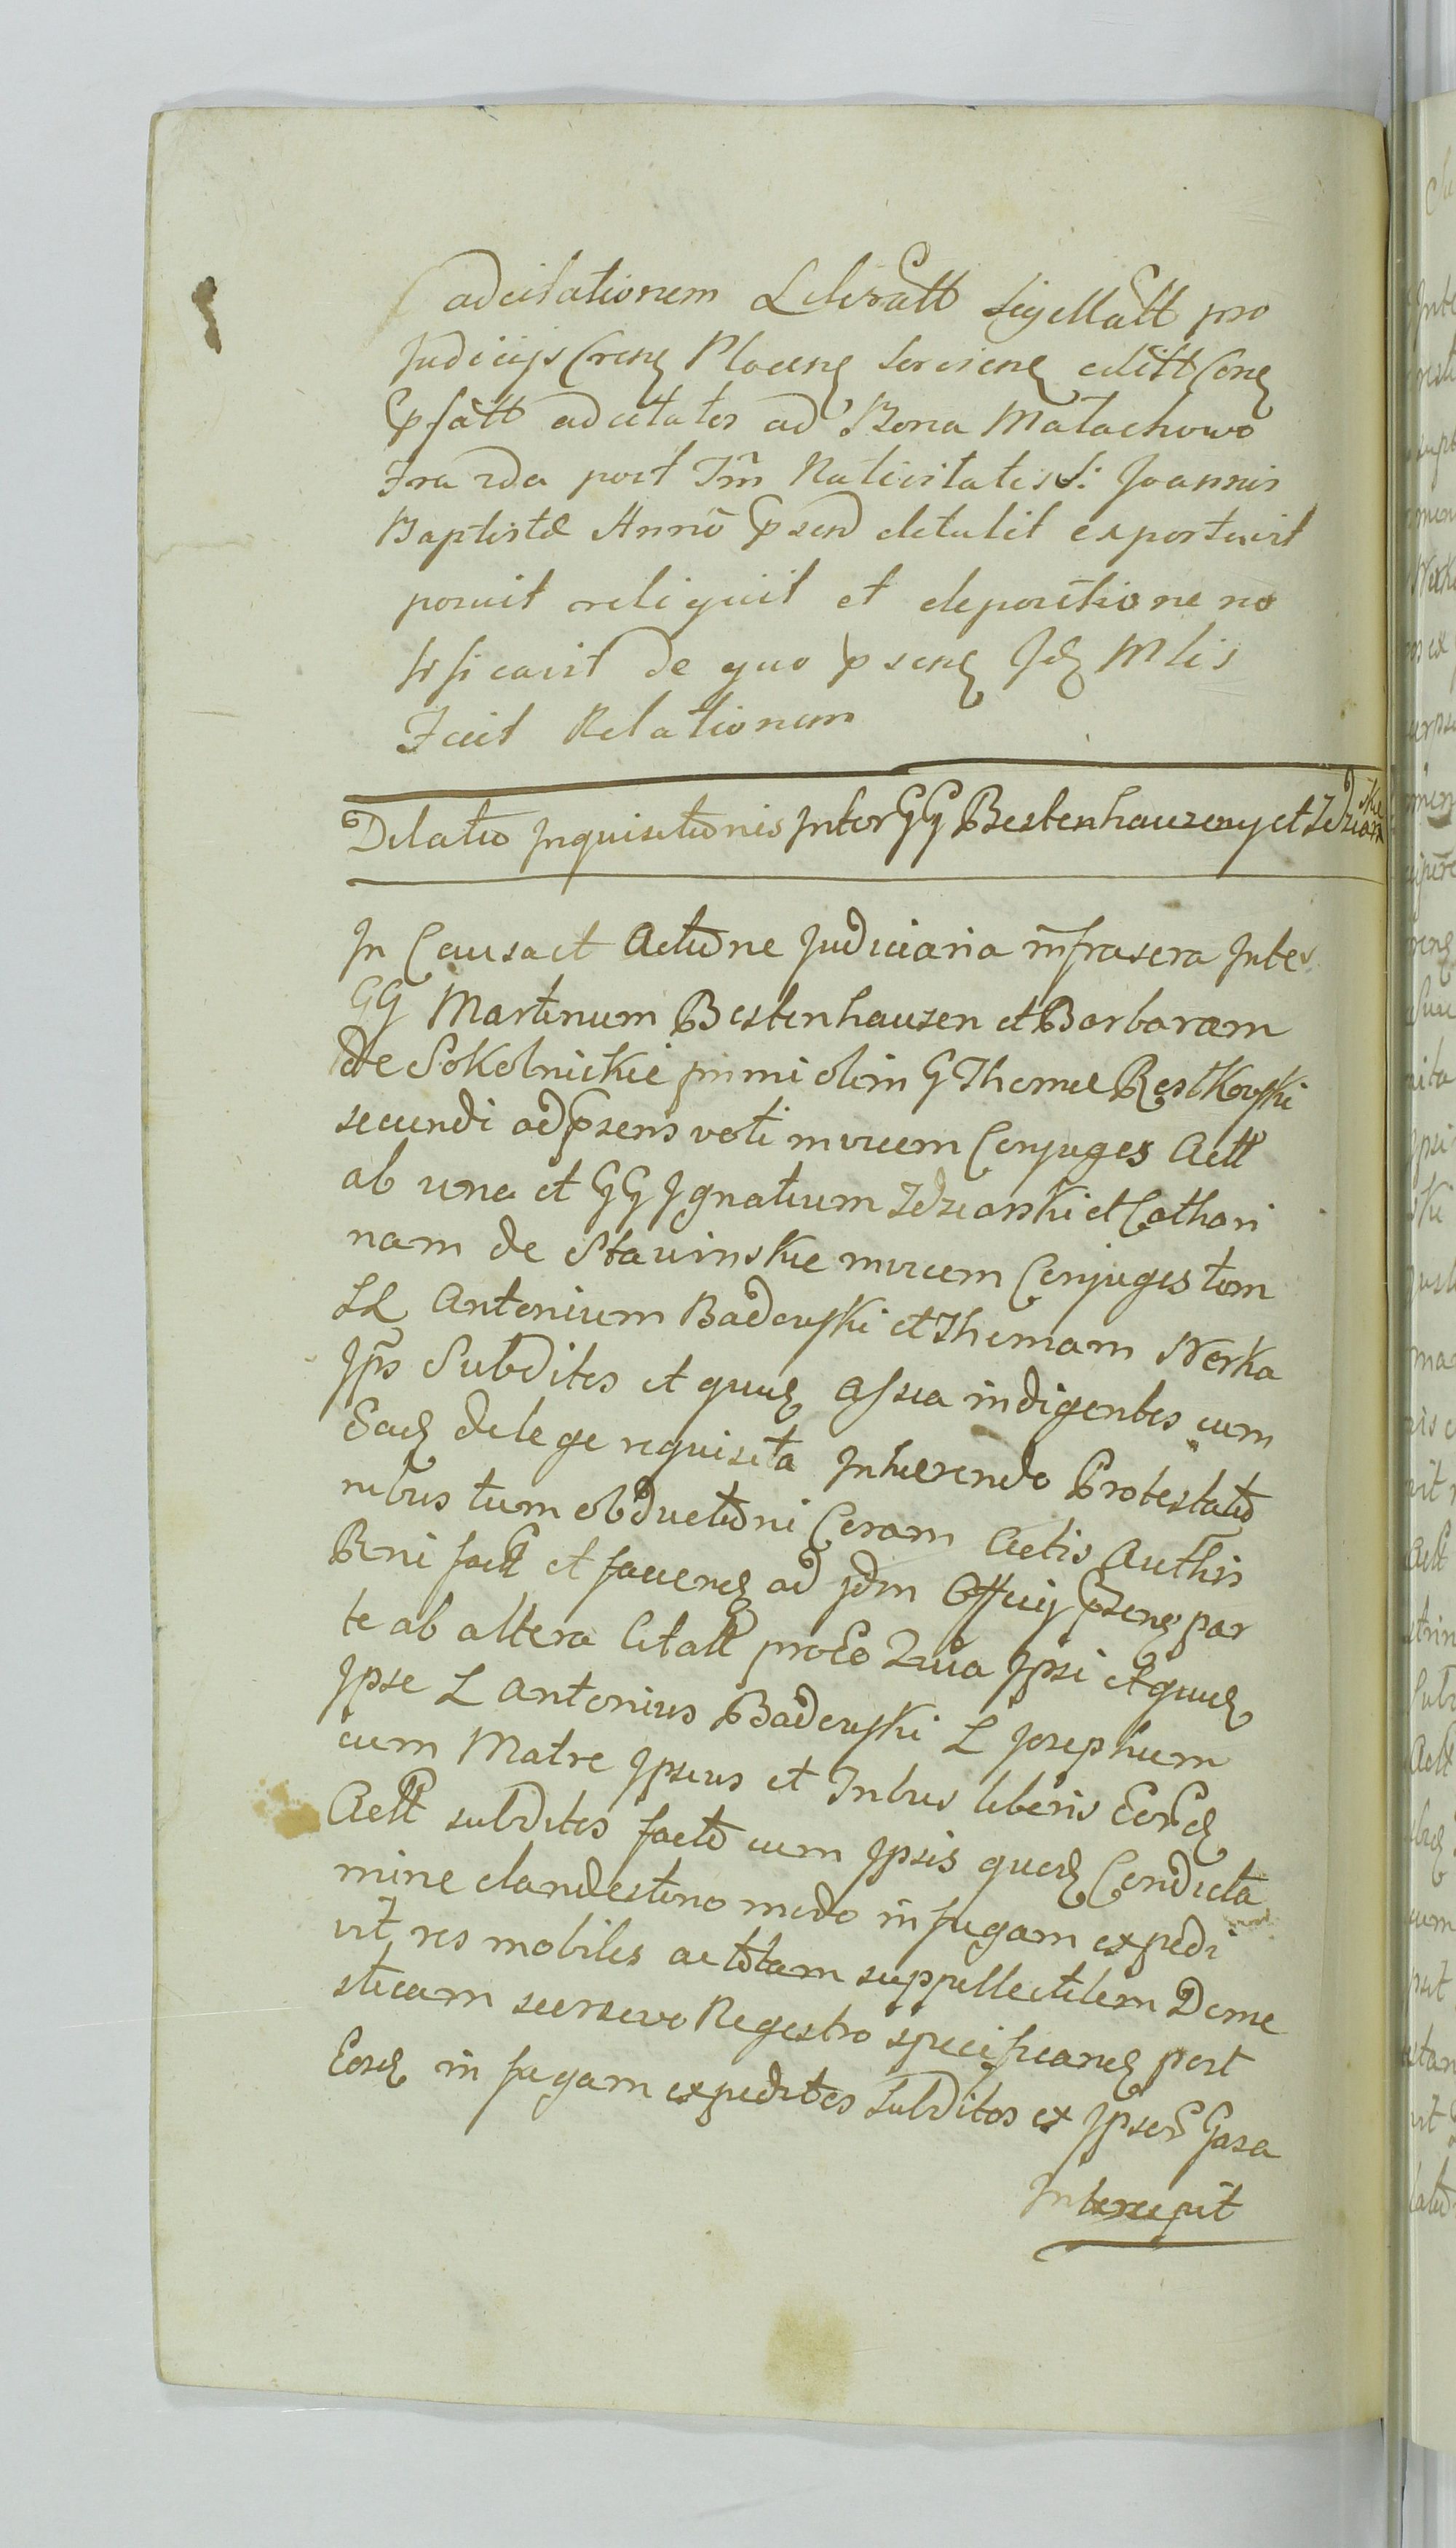 adcitationem Litteratt Sigillatt pro
Judicijs Crens Plocens Serviens editt Cons
Ppsatt adcitatos ad Bona Małachowo
Fra 2da post Fm Nativitatis S: Joannis
Baptistæ Anno Psend detulit exportavit
posuit reliquit et depositione no
tificavit de quo psens Jdz Mlis
Fecit Relationem
Delatio Inquisitionis Inter GG Bestenhauzeny et Zdziarskie
In Causa et Actione Judiciaria infrascra Inter
GG Martinum Bestenhauzen et Barbaram
de Sokolnickie primi olim G Thomæ Rostkowski
secundi ad Psens voti invicem Conjuges Actt
ab una et GG Ignatium Zdziarski et Cathari
nam de Stawinskie invicem Conjuges tum
LL Antonium Badowski et Thomam Nerka
Jps Subditos et quus Assia indigentes cum
Eads de lege requisita Inhærendo Protestatio
nibus tum obductioni Coram Actis Authis
Bni factt et faciends ad jdm Officij Psens par
te ab altera Citatt pro Eo Quia Ipsi et quus
Ipse L Antonius Badowski L Josephum
cum Matre Ipsius et Tribus liberis Eords
Actt subditos facto cum Ipsis quods Condicta
mine clandestino modo in fugam expedi
vit, res mobiles ac totam suppellectilem Dome
sticam seorsivo Regestro specificands post
Eosds in fugam expeditos Subditos ex Ipsor Gaza
Intercepit